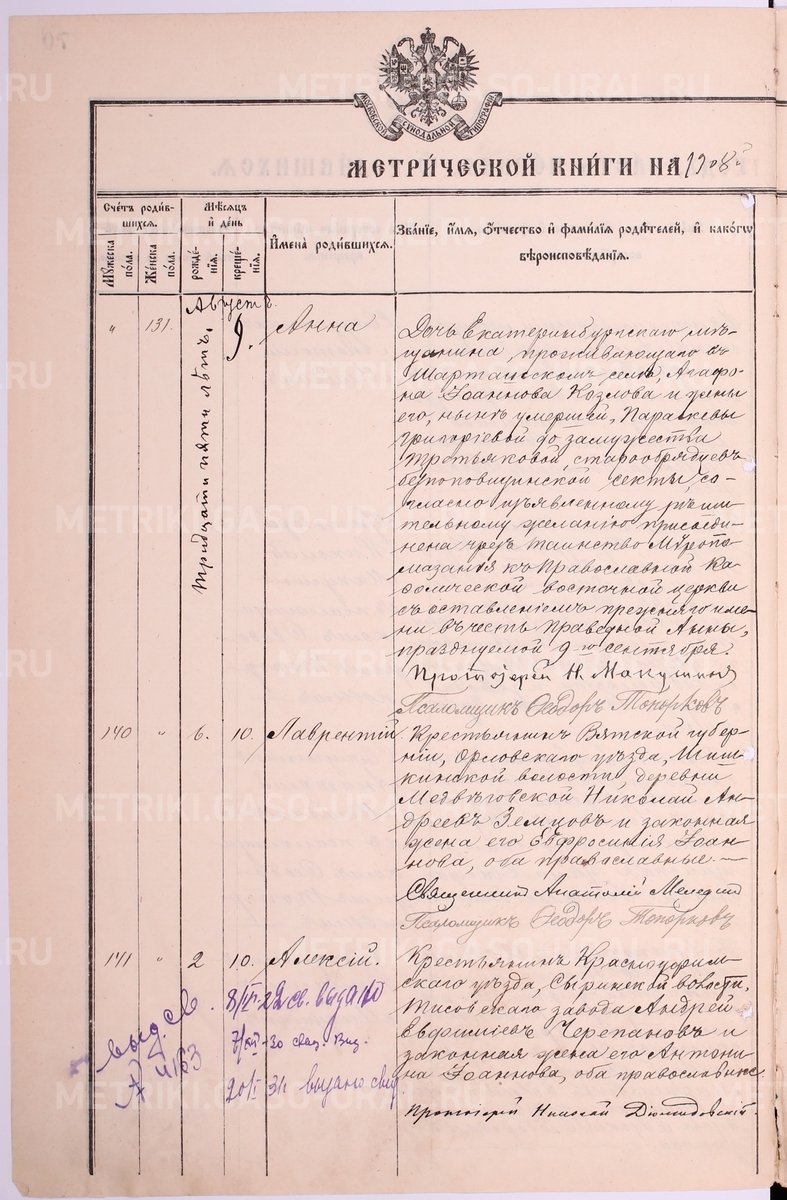 МОСКОВСКОЙ СИНОДАЛЬНОЙ ТИПОГРАФІИ
МЕТРИ́ЧЕСКОЙ КНИ́ГИ НА 1908 й
Сче́тъ роди́вшихся.
Мѣ́сяцъ и де́нь
Имена̀ роди́вшихся.
Зва́ніе, и́мя, ѻ҆́тчество и фами́лія роди́телей, и како́гѡ вѣроисповѣ́данія.
Му́жеска по́ла.
Же́нска по́ла.
рожде́нія.
креще́нія.
Августъ.
„ 131. Тридцати пяти лѣтъ. 9. Анна
Дочь Екатеринбургскаго мѣ-
щанина, проживающаго въ
Шарташскомъ селѣ, Агафо-
на Іоаннова Козлова и жены
его, нынѣ умершей, Параскевы
Григоріевой до замужества
Третьяковой, старообрядцевъ
безпоповщинской секты, со-
гласно изъявленному рѣши-
тельному желанію присоеди-
нена чрезъ таинство Мѵропо-
мазанія къ Православной Ка-
ѳолической восточной церкви
съ оставленіемъ прежняго име-
ни въ честь праведной Анны,
празднуемой 9-го сентября.
Протоіерей Н.
Псаломщикъ Ѳеодоръ Топорковъ
140 „ 6. 10. Лаврентій.
Крестьянинъ Вятской губер-
ніи, Орловскаго уѣзда, Шиш-
кинской волости деревни
Медвѣговской Николай Ан-
дреевъ Земцовъ и законная
жена его Евфросинія Іоан-
нова, оба православные. —
Священникъ Анатолій
Псаломщикъ Ѳеодоръ Топорковъ
141 „ 2 10. Алексій.
Крестьянинъ Красноуфим-
скаго уѣзда, Сыринской волости,
Тисовскаго завода Андрей
Евфиміевъ Черепановъ и
законная жена его Антони-
на Іоаннова, оба православные.
Протоіерей Николай
22 св. выдано
30 свид. Выд.
20/I 31 выдано свид
4163
METRIKI.GASO-URAL.RU